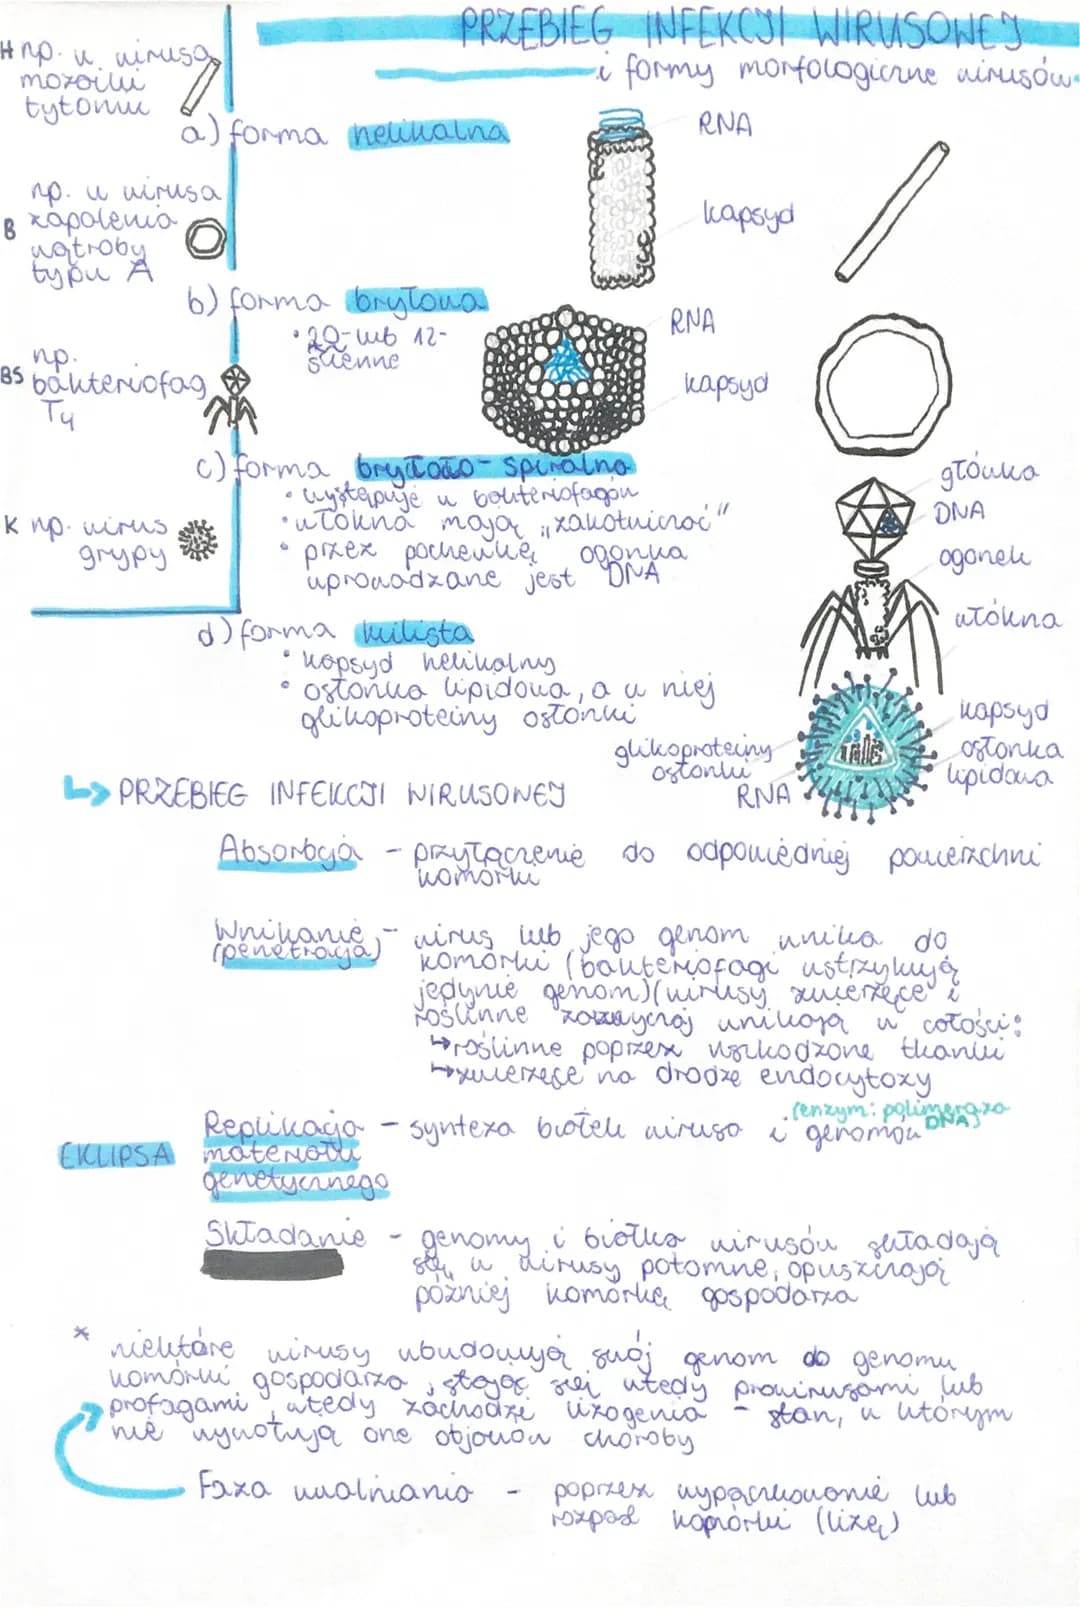 PRZEBIEG INFEKCJI WIRUSOWEJ
i formy morfologiczne wirusów
H np. u wirusa
mozaiki
tytoniu
a) forma helikalna
RNA
kapsyd
np. u wirusa
B zapalenia
wątroby
typu A
b) forma bryłowa
• 20- lub 12-
ścienne
RNA
kapsyd
np.
BS bakteriofag
T4
c) forma bryłowo-spiralna
• występuje u bakteriofagów
• włókna mają „zakotwiczać"
• przez pochewkę ogonka
wprowadzane jest DNA
główka
DNA
ogonek
włókna
K np. wirus
grypy
d) forma kulista
• kapsyd helikalny
• osłonka lipidowa, a w niej
glikoproteiny osłonki
glikoproteiny
osłonki
RNA
kapsyd
osłonka
lipidowa
↳ PRZEBIEG INFEKCJI WIRUSOWEJ
Absorbcja - przyłączenie do odpowiedniej powierzchni
komórki
Wnikanie - wirus lub jego genom wnika do
(penetracja) komórki (bakteriofagi wstrzykują
jedynie genom)(wirusy zwierzęce i
roślinne zazwyczaj wnikają w całości:
↳ roślinne poprzez uszkodzone tkanki
↳ zwierzęce na drodze endocytozy
(enzym: polimeraza
DNA)
Replikacja - synteza białek wirusa i genomów
EKLIPSA materiału
genetycznego
Składanie - genomy i białka wirusów składają
się w wirusy potomne, opuszczają
później komórkę gospodarza
* niektóre wirusy wbudowują swój genom do genomu
komórki gospodarza, stając się wtedy prowirusami lub
profagami, wtedy zachodzi lizogenia - stan, w którym
nie wywołują one objawów choroby
Faza uwalniania - poprzez wypączkowanie lub
rozpad komórki (lizę)